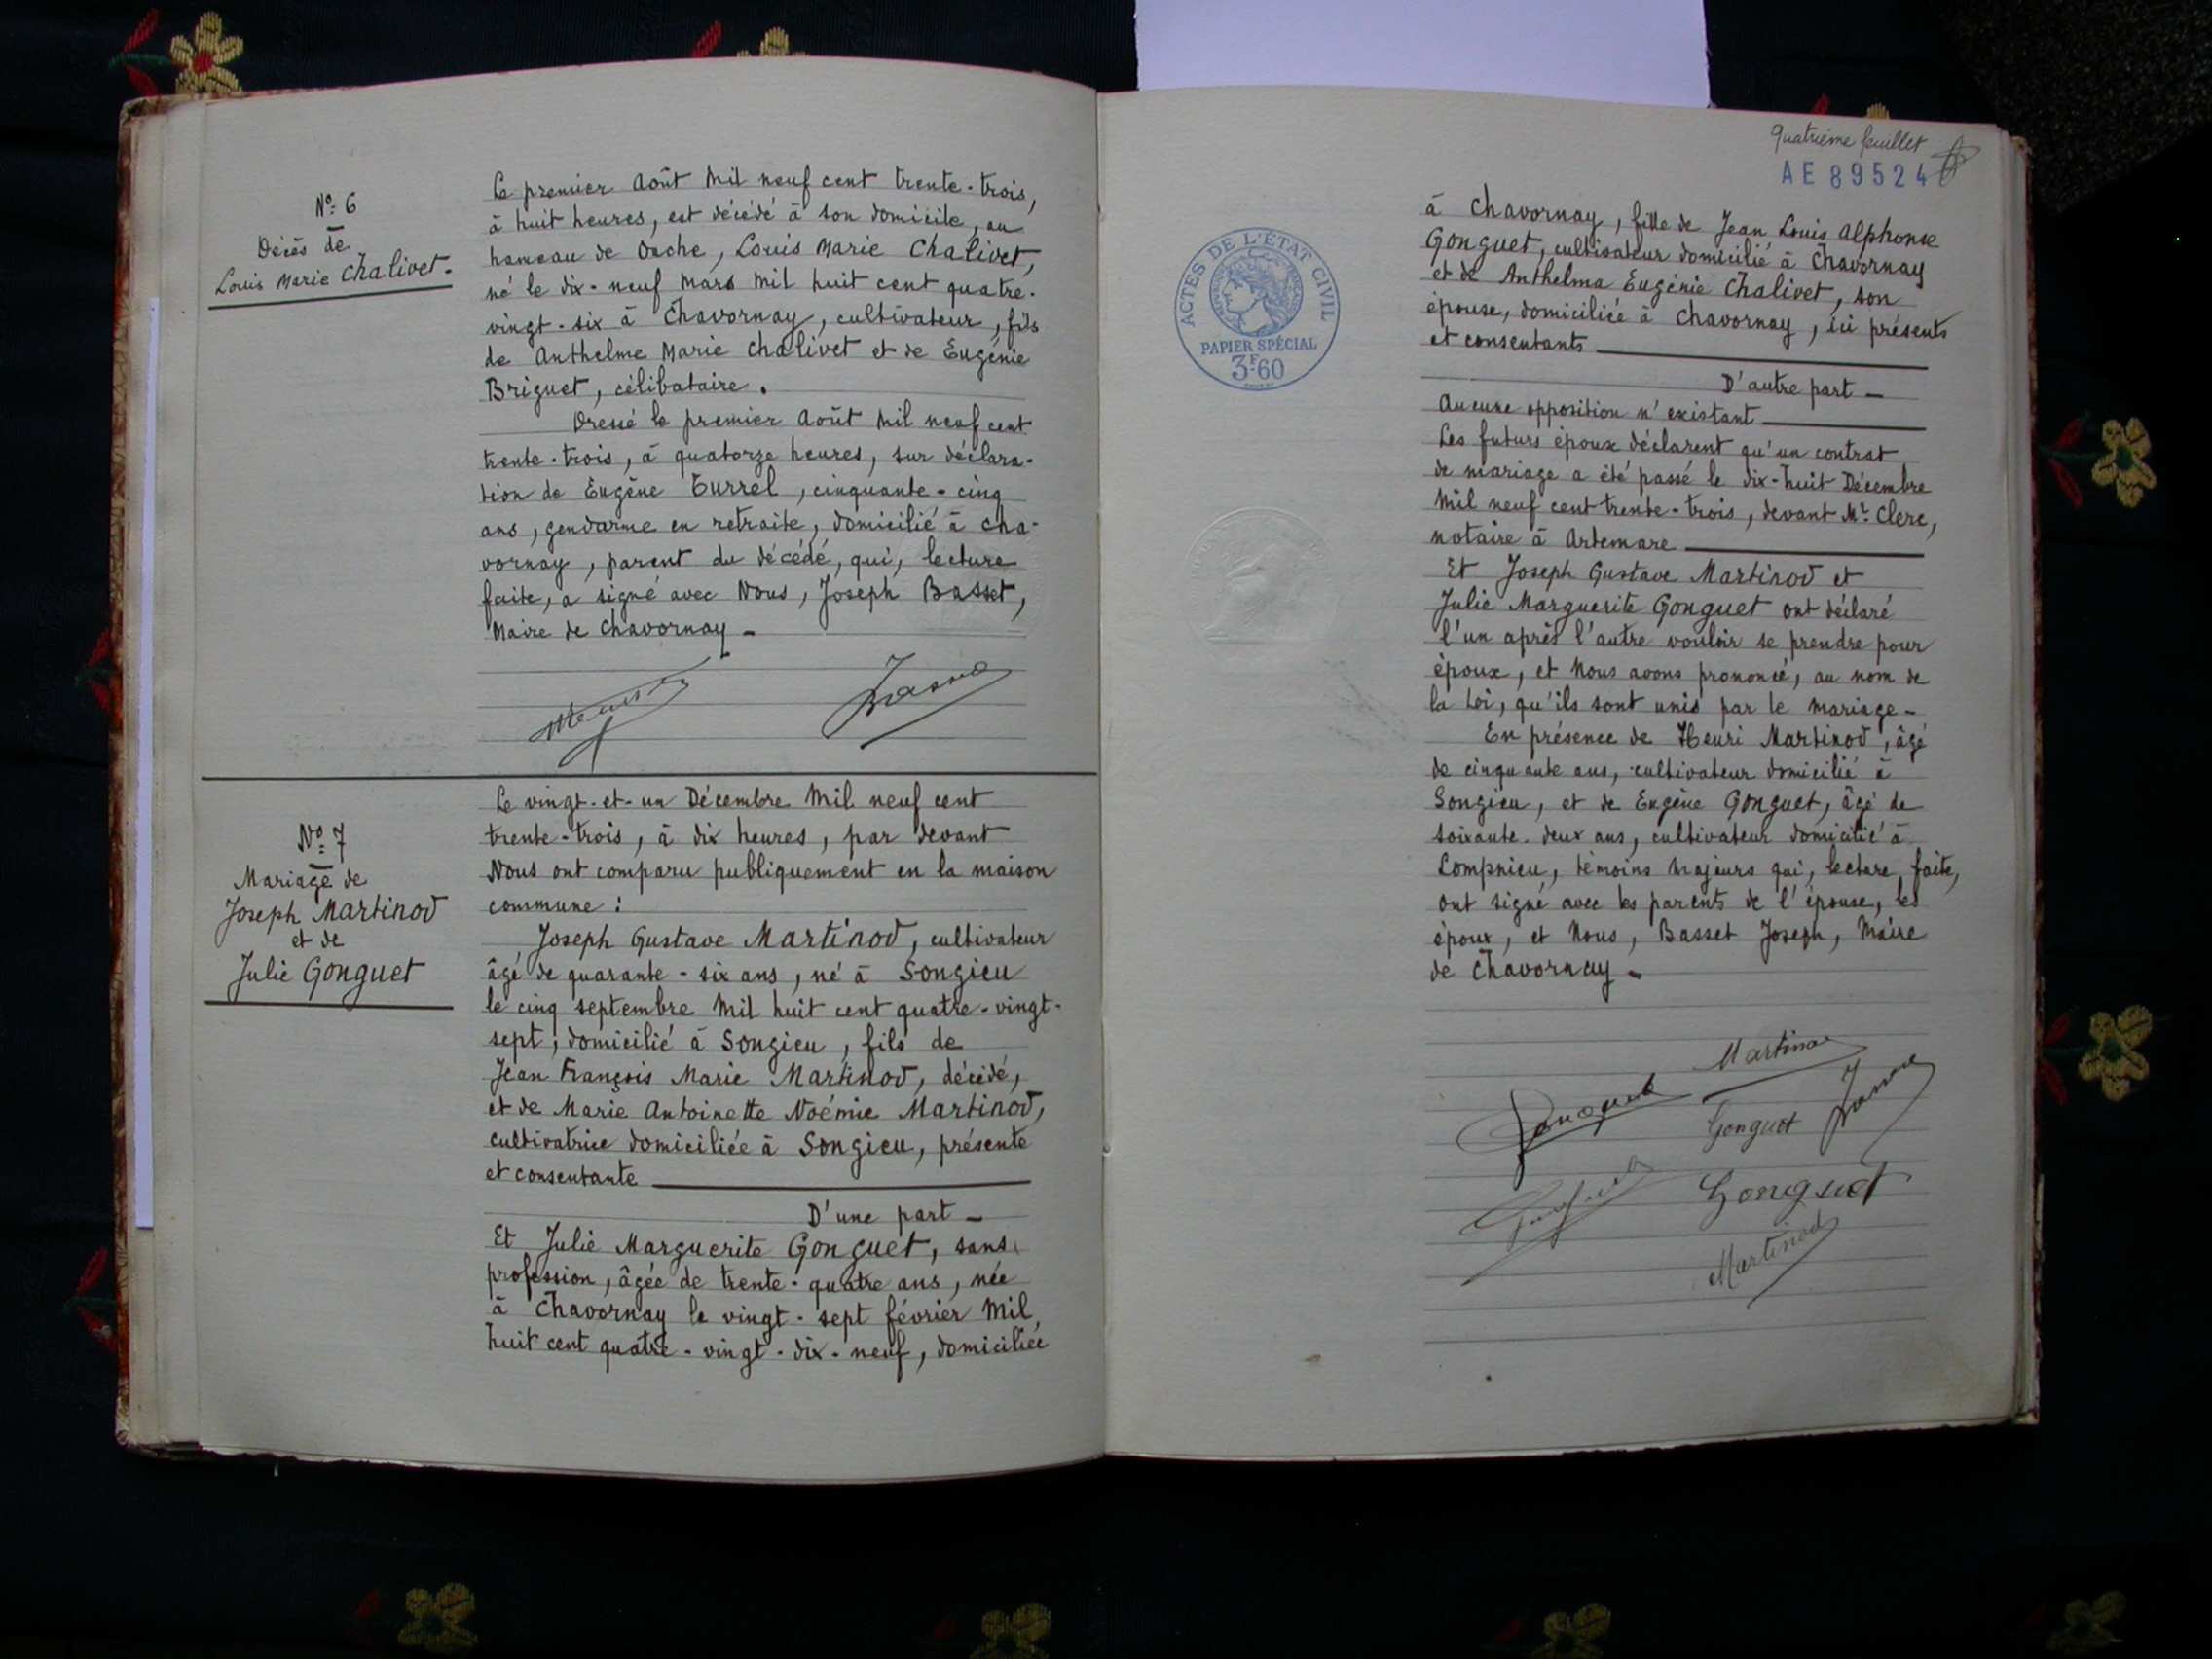 Nº 6
Décès de
Louis Marie Chalivet.
Le premier Août mil neuf cent trente-trois,
à huit heures, est décédé à son domicile, au
hameau de Ouche, Louis Marie Chalivet,
né le dix-neuf Mars mil huit cent quatre-
vingt-six à Chavornay, cultivateur, fils
de Anthelme Marie Chalivet et de Eugénie
Briguet, célibataire.
Dressé le premier Août mil neuf cent
trente-trois, à quatorze heures, sur déclara-
tion de Eugène Turrel, cinquante-cinq
ans, gendarme en retraite, domicilié à Cha-
vornay, parent du décédé, qui, lecture
faite, a signé avec Nous, Joseph Basset,
Maire de Chavornay -
Nº 7
Mariage de
Joseph Martinod
et de
Julie Gonguet
Le vingt-et-un Décembre Mil neuf cent
trente-trois, à dix heures, par devant
Nous ont comparu publiquement en la maison
commune :
Joseph Gustave Martinod, cultivateur
âgé de quarante-six ans, né à Songieu
le cinq septembre Mil huit cent quatre-vingt-
sept, domicilié à Songieu, fils de
Jean François Marie Martinod, décédé,
et de Marie Antoinette Noémie Martinod,
cultivatrice domiciliée à Songieu, présente
et consentante
D'une part -
Et Julie Marguerite Gonguet, sans
profession, âgée de trente-quatre ans, née
à Chavornay le vingt-sept février Mil
huit cent quatre-vingt-dix-neuf, domiciliée
quatrième feuillet
AE 89524
ACTES DE L'ÉTAT CIVIL
PAPIER SPÉCIAL
3F60
à Chavornay, fille de Jean Louis Alphonse
Gonguet, cultivateur domicilié à Chavornay
et de Anthelma Eugénie Chalivet, son
épouse, domiciliée à Chavornay, ici présents
et consentants
D'autre part -
Aucune opposition n'existant
Les futurs époux déclarent qu'un contrat
de mariage a été passé le dix-huit Décembre
Mil neuf cent trente-trois, devant Mr. Clerc,
notaire à Artemare
Et Joseph Gustave Martinod et
Julie Marguerite Gonguet ont déclaré
l'un après l'autre vouloir se prendre pour
époux, et Nous avons prononcé, au nom de
la Loi, qu'ils sont unis par le mariage -
En présence de Henri Martinod, âgé
de cinquante ans, cultivateur domicilié à
Songieu, et de Eugène Gonguet, âgé de
soixante-deux ans, cultivateur domicilié à
Lompnieu, témoins majeurs qui, lecture faite,
ont signé avec les parents de l'épouse, les
époux, et Nous, Basset Joseph, Maire
de Chavornay -
Martinod
Gonguet
Gonguet
Gonguet
Martinod